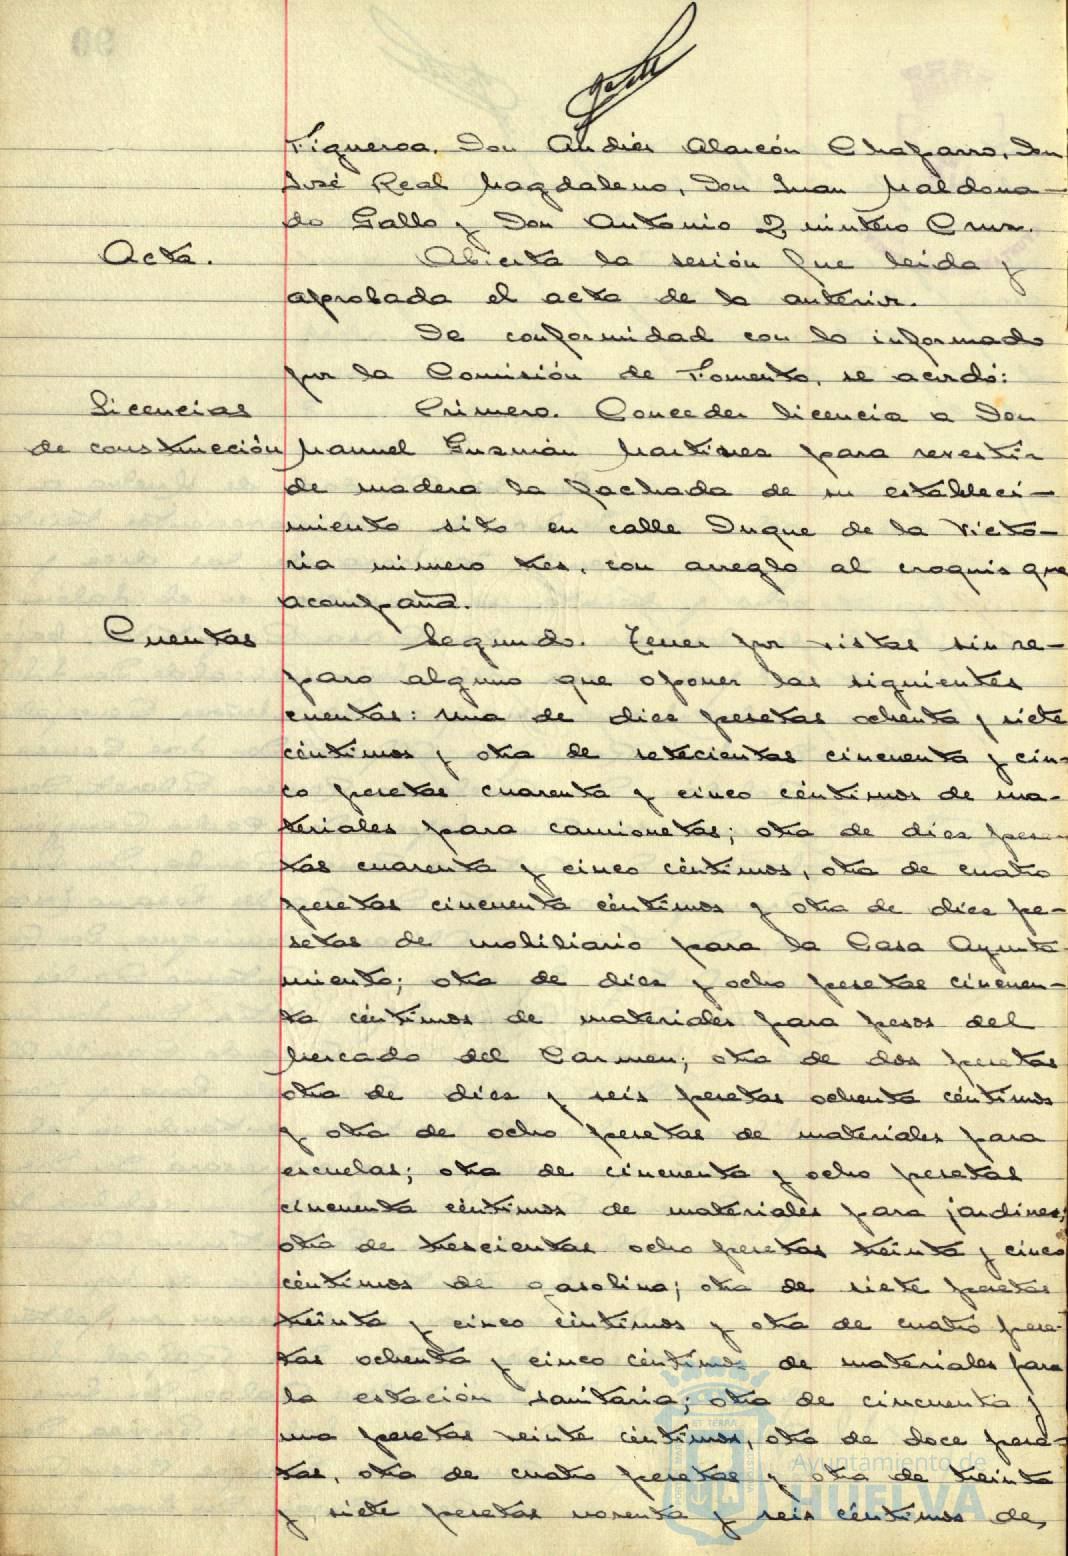 Figueroa, Don Andrés Alarcón Chaparro, Don
José Real Magdaleno, Don Juan Maldona-
do Gallo y Don Antonio Quintero Cruz.
Acta.
Abierta la sesión fue leida y
aprobada el acta de la anterior.
De conformidad con lo informado
por la Comisión de Fomento, se acordó:
Licencias
de construcción
Primero. Conceder licencia a Don
Manuel Guzmán Martínez para revestir
de madera la fachada de su estableci-
miento sito en calle Duque de la Victo-
ria número tres, con arreglo al croquis que
acompaña.
Cuentas
Segundo. Tener por vistas sin re-
paro alguno que oponer las siguientes
cuentas: una de diez pesetas ochenta y siete
céntimos y otra de setecientas cincuenta y cin-
co pesetas cuarenta y cinco céntimos de ma-
teriales para camionetas; otra de diez pese-
tas cuarenta y cinco céntimos, otra de cuatro
pesetas cincuenta céntimos y otra de diez pe-
setas de mobiliario para la Casa Ayunta-
miento; otra de diez y ocho pesetas cincuen-
ta céntimos de materiales para pesos del
Mercado del Carmen; otra de dos pesetas
otra de diez y seis pesetas ochenta céntimos
y otra de ocho pesetas de materiales para
escuelas; otra de cincuenta y ocho pesetas
cincuenta céntimos de materiales para jardines;
otra de trescientas ocho pesetas treinta y cinco
céntimos de gasolina; otra de siete pesetas
treinta y cinco céntimos y otra de cuatro pese-
tas ochenta y cinco céntimos de materiales para
la estación sanitaria; otra de cincuenta y
una pesetas veinte céntimos, otra de doce pese-
tas, otra de cuatro pesetas y otra de treinta
y siete pesetas noventa y seis céntimos de
Ayuntamiento de
HUELVA